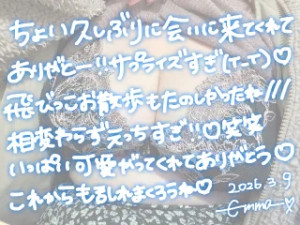 ちょい久しぶりに会いに来てくれて
ありがとー!!サプライズすぎ(T-T)♡
飛びっこお散歩もたのしかったね///
相変わらずえっちすぎ!!♡笑笑
いっぱい可愛がってくれてありがとう♡
これからも乱れまくろうね♡
2026.3.9
-Emma-♡